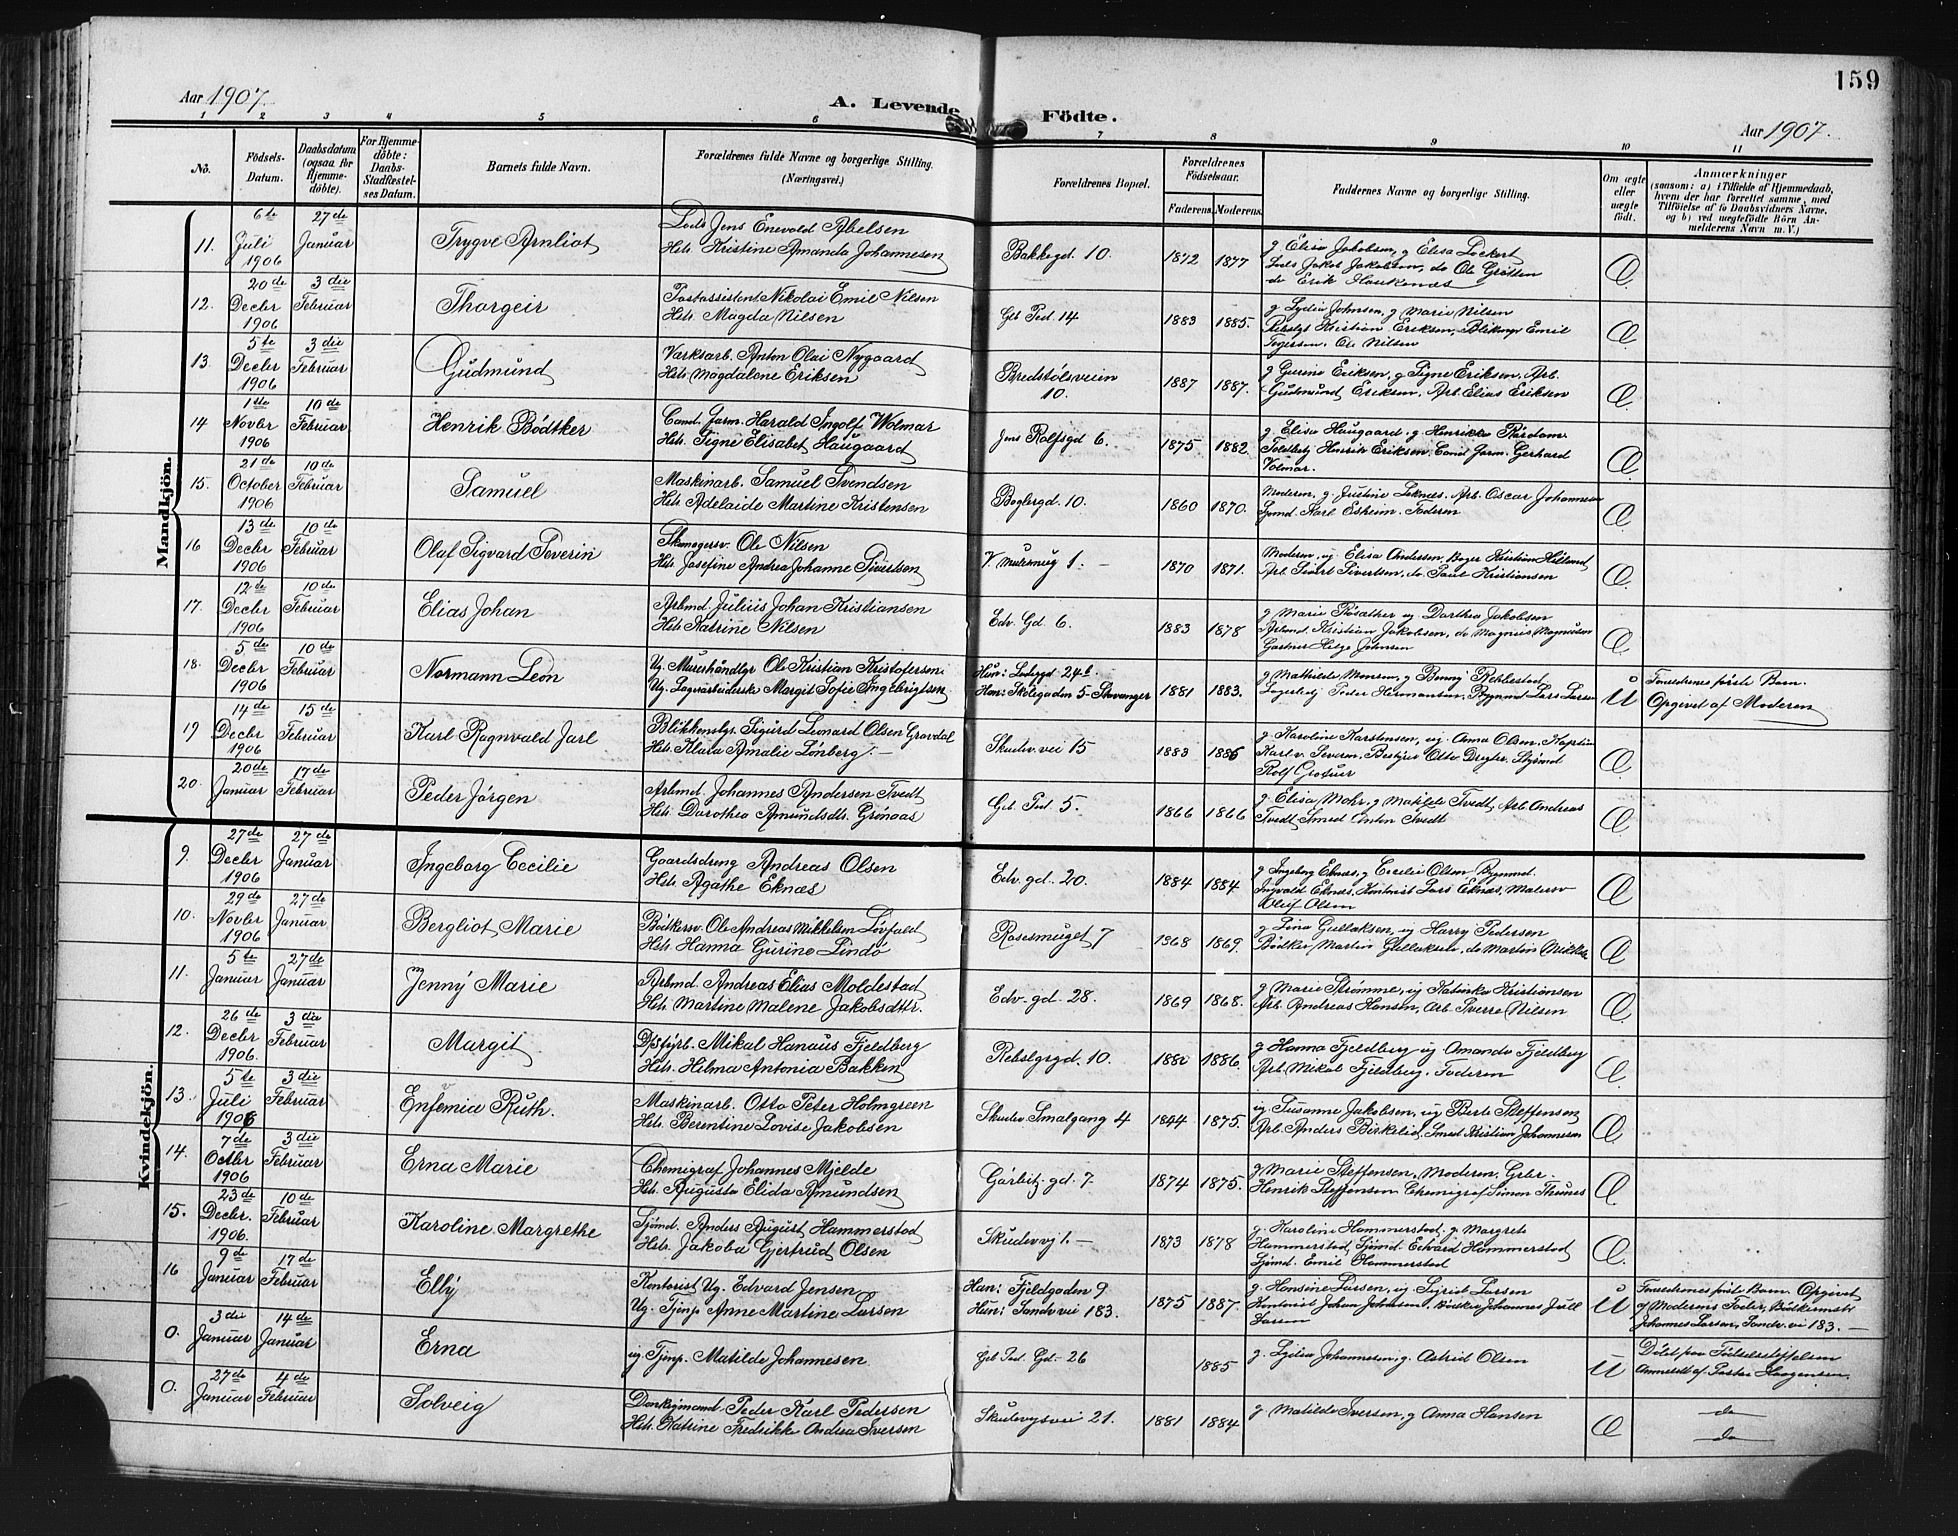 159
Aar 1907.
A. Levende Födte.
Aar 1907.
1 2 3 4 5 6 7 8 9 10 11
No.
Födsels-Datum.
Daabsdatum (ogsaa for Hjemmedöbte).
For Hjemmedöbte: Daabs-Stadfæstelses Datum.
Barnets fulde Navn.
Forældrenes fulde Navne og borgerlige Stilling. (Næringsvei.)
Forældrenes Bopæl.
Forældrenes Födselsaar.
Faderens. Moderens.
Faddernes Navne og borgerlige Stilling.
Om ægte eller uægte födt.
Anmærkninger
(saasom: a) i Tilfælde af Hjemmedaab, hvem der har forrettet samme, med Tilföielse af to Daabsvidners Navne, og b) ved uægtefödte Börn Anmelderens Navn m. V.)
Mandkjön.
11. 6te Juli 1906 27de Januar Trygve Arnliot
Lods Jens Enevold Abelsen
Hstr. Kristine Amanda Johannesen
Bakkegd. 10. 1872 1877
g. Elise Jakobsen, g Elisa Lockert
Lods Jakob Jakobsen, do Ole Gretten
do Erik Haukenæs
Æ
12. 20de Decbr 1906 3die Februar Thorgeir
Postassistent Nikolai Emil Nilsen
Hstr. Magda Nilsen
Geb Ped. 14 1883 1885.
g. Lydia Johnsen, g Marie Nilsen
Kristian Eriksen, Emil
Ole Nilsen
Æ
13. 5te Decbr 1906 3die Februar Gudmund
Værksarb. Anton Olai Nygaard
Hstr. Magdalene Eriksen
Bredstølsveien 10. 1887 1887.
g Gurine Eriksen, g Signe Eriksen, Arb.
Gudmund Eriksen, Arb. Elias Eriksen
Æ
14 1ste Novbr 1906 10de Februar Henrik Bödtker
Cand. farm. Harald Ingolf Wolmar
Hstr. Signe Elisabet Haugaard
Jens Rolfsgd 6. 1875 1882.
g. Elise Haugaard. g Henrikke Rördam
Toldbetj Henrik Eriksen. Cand farm. Gerhard
Volmar.
Æ
15. 21de October 1906 10de Februar Samuel
Maskinarb. Samuel Svendsen
Hstr. Adelaide Martine Kristensen
Boglergd. 10. 1860 1870.
Moderen, g. Justine Leknæs. Arb. Oscar Johannesen
Sjømd. Karl Esheim. Faderen
Æ
16 13de Decbr 1906 10de Februar Olaf Sigvard Severin
Skomagersv. Ole Nilsen
Hstr. Josefine Andrea Johanne Sivertsen
V. Mulesmug 1. 1870 1871.
Moderen, ug Elisa Andersen, Bager Kristian Helland
Arb. Sivert Sivertsen, do Paul Kristiansen
Æ
17. 12de Decbr 1906 10de Februar Elias Johan
Arbmd. Julius Johan Kristiansen
Hstr. Katrine Nilsen
Edv. Gd. 6. 1883 1878
g Marie Röisæther ug Dorthea Jakobsen
Arbmd. Kristian Jakobsen, do Magnus Magnusen
Gartner Helge Johnsen
Æ
18. 5de Decbr 1906 10de Februar Normann Leon
Ug. Murerhåndlgr Ole Kristian Kristofersen
Ug. Lagerarbeiderske Margit Sofie Ingebrigtsen
Hun: Lodsgd 24b
Han: Skolegaden 5 - Stavanger 1881 1883.
g Mathilde Monsen, g Benny Robbestad
Peder Hermansen, Bygmd Lars Larsen
U
Forældrenes første Barn.
Opgivet af Moderen
19 14de Decbr 1906 15de Februar Karl Ragnvald Jarl
Blikkenslgr. Sigurd Leonard Olsen Gravdal
Hstr. Klara Amalie Lönberg
Skudev. vei 15 1883 1886
g. Karoline Karstensen, ug. Anna Olsen, Kaptein
Karl v. Severin, Bestyrer Otto Dregler, Styrmd
Rolf
Æ
20. 20de Januar 17de Februar Peder Jörgen
Arbmd. Johannes Andersen Tvedt
Hstr. Dorothea Amundsdtr. Grønaas
Geb. Ped 5. 1866 1866
g. Elisa Mohr, g Matilde Tvedt, Arb. Andreas
Tvedt, Smed Anton Tvedt
Æ
Kvindekjön.
9. 27de Decbr 1906 27de Januar Ingeborg Cecilie
Gaardsdreng Andreas Olsen
Hstr. Agathe Eknæs
Edv. gd. 20. 1884 1884
g. Ingeborg Eknæs, g Cecilie Olsen Bygmmd.
Ingvald Eknæs, Kontorist Lars Eknæs, Malersv
Oluf Olsen
Æ
10. 29de Novbr 1906 27de Januar Bergliot Marie
Bødkersv. Ole Andreas Mikkelsen Lövfald
Hstr. Hanna Gurine Lindö
Rosesmuget 7 1868 1869.
g Lina Gullaksen, ug Harry Pedersen
Bödker Martin Gullaksen, do Martin
Æ
11. 5te Januar 27de Januar Jenny Marie
Arbmd. Andreas Elias Moldestad
Hstr. Martine Malene Jakobsdttr.
Edv. gd. 28. 1869 1868.
g Marie Strömme, ug Katinka Kristiansen
Arb. Andreas Hansen, Arb. Sverre Nilsen
Æ
12. 26de Decbr 1906. 3die Februar Margit
D/sfyrb. Mikal Hanaus Fjeldberg
Hstr. Helma Antonia Bakken
Rebslgrgd. 10. 1880 1886.
g. Hanna Fjeldberg ug Amanda Fjeldberg
Arb. Mikal Fjeldberg. Faderen
Æ
13. 5te Juli 1906 3die Februar Eufemia Ruth.
Maskinarb. Otto Peter Holmgreen
Hstr. Berentine Lovise Jakobsen
Skudev Smalgang 4 1844 1875.
ug. Susanne Jakobsen, ug Berte Steffensen
Arb. Anders Birkelid, Smed Kristian Johannesen
Æ
14. 7de Octbr 1906 3die Februar Erna Marie
Chemigraf Johannes Mjelde
Hstr. Augusta Elida Amundsen
Garbitz gd. 7. 1874 1875.
g. Marie Steffensen, Moderen, Grbr.
Henrik Steffensen Chemigraf Simon Thunes
Æ
15. 23de Decbr. 1906. 10de Februar Karoline Margrethe
Sjömd. Anders August Hammerstad
Hstr. Jakoba Gjertrud Olsen
Skudevvj 1. 1873 1878
g. Karoline Hammerstad, g. Margrete
Hammerstad, Sjömd. Edvard Hammerstad
Sjömd. Emil Hammerstad
Æ
16 9de Januar 17de Februar Elly
Kontorist Ug. Edvard Jensen
Ug. Tjenp Anne Martine Larsen
Han: Fjeldgaden 9
Hun: Sandv. vei 183. 1875 1887.
g. Hansine Larsen, ug Sigrid Larsen
Kontorist Johan Johnsen. Bödker Johannes Juell
Larsen
U
Forældrenes første Barn. Opgivet
af Moderens Fader, Bödkermstr
Johannes Larsen, Sandv. vei 183.
0. 3die Januar 14de Januar Erna
ug Tjenp. Matilde Johannesen
Geb Ped. Gd. 26 1885
g. Lydia Johannesen, g. Astrid Olsen
U
Döbt paa Födselsstiftelsen
Anmeldt af Pastor Haagensen.
0. 27de Januar 4de Februar Solveig
Donkeymand Peder Karl Pedersen
Hstr. Katrine Fredrikke Andrea Iversen
Skudevigsvei 21. 1881 1884
g. Matilde Iversen, g Anna Hansen
Æ
do
do